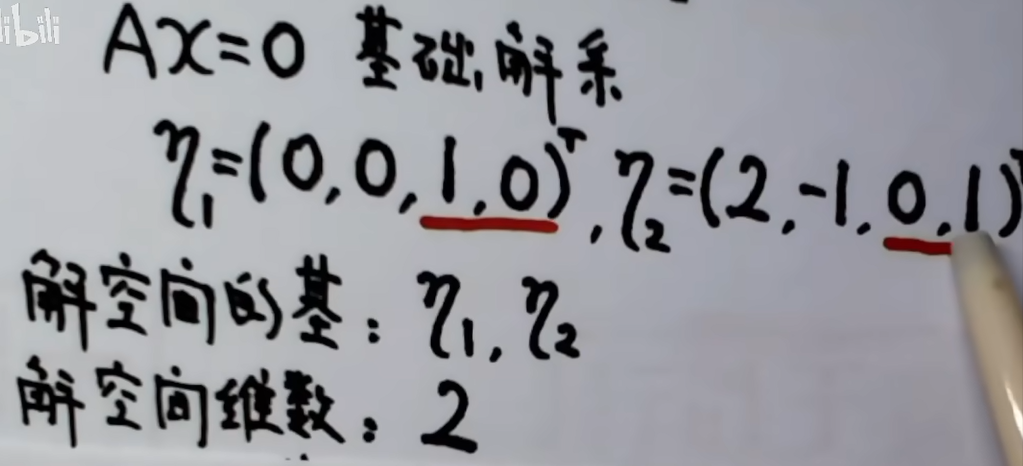 libili
Ax=0 基础解系
η₁=(0,0,1,0)ᵀ,η₂=(2,-1,0,1)ᵀ
解空间的基:η₁,η₂
解空间维数:2